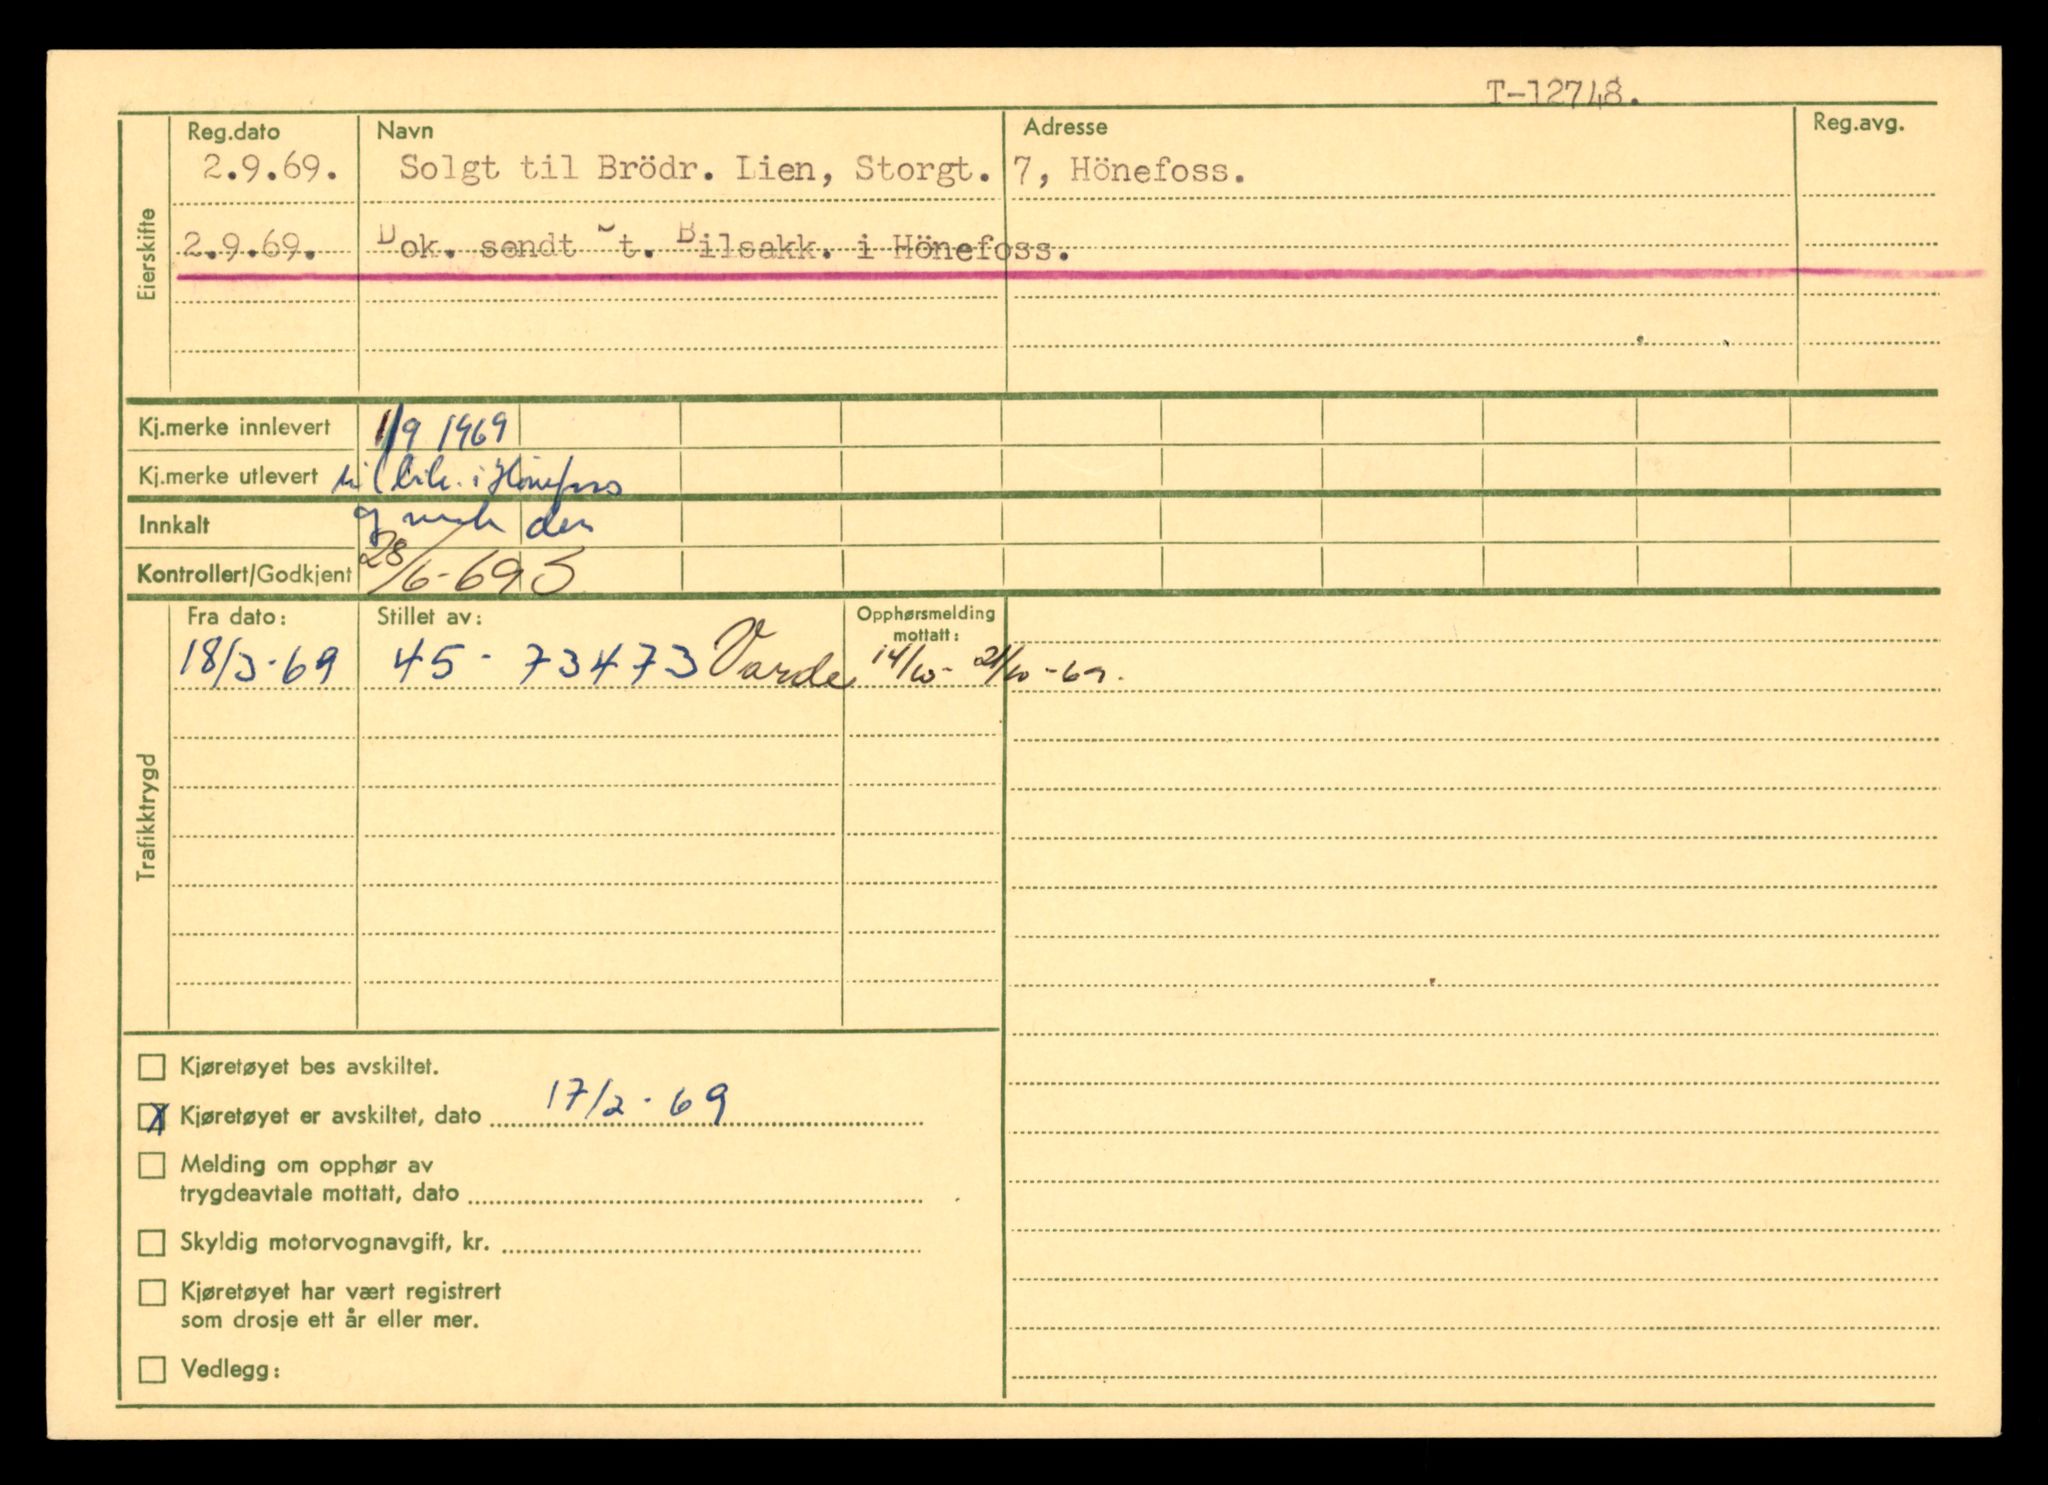 T-12748.
Reg.dato Navn Adresse Reg.avg.
2.9.69. Solgt til Brödr. Lien, Storgt. 7, Hönefoss.
2.9.69. Dok. sendt t. Bilsakk. i Hönefoss.
Eierskifte
Kj.merke innlevert 1/9 1969
Kj.merke utlevert til bils. i Hönefoss
Innkalt den
Kontrollert/Godkjent 28/6-69 S
Fra dato: Stillet av: Opphørsmelding
mottatt:
18/3-69 45-73473 Varde 14/10- 21/10-69.
Trafikktrygd
Kjøretøyet bes avskiltet.
X Kjøretøyet er avskiltet, dato 17/2-69
Melding om opphør av
trygdeavtale mottatt, dato
Skyldig motorvognavgift, kr.
Kjøretøyet har vært registrert
som drosje ett år eller mer.
Vedlegg: